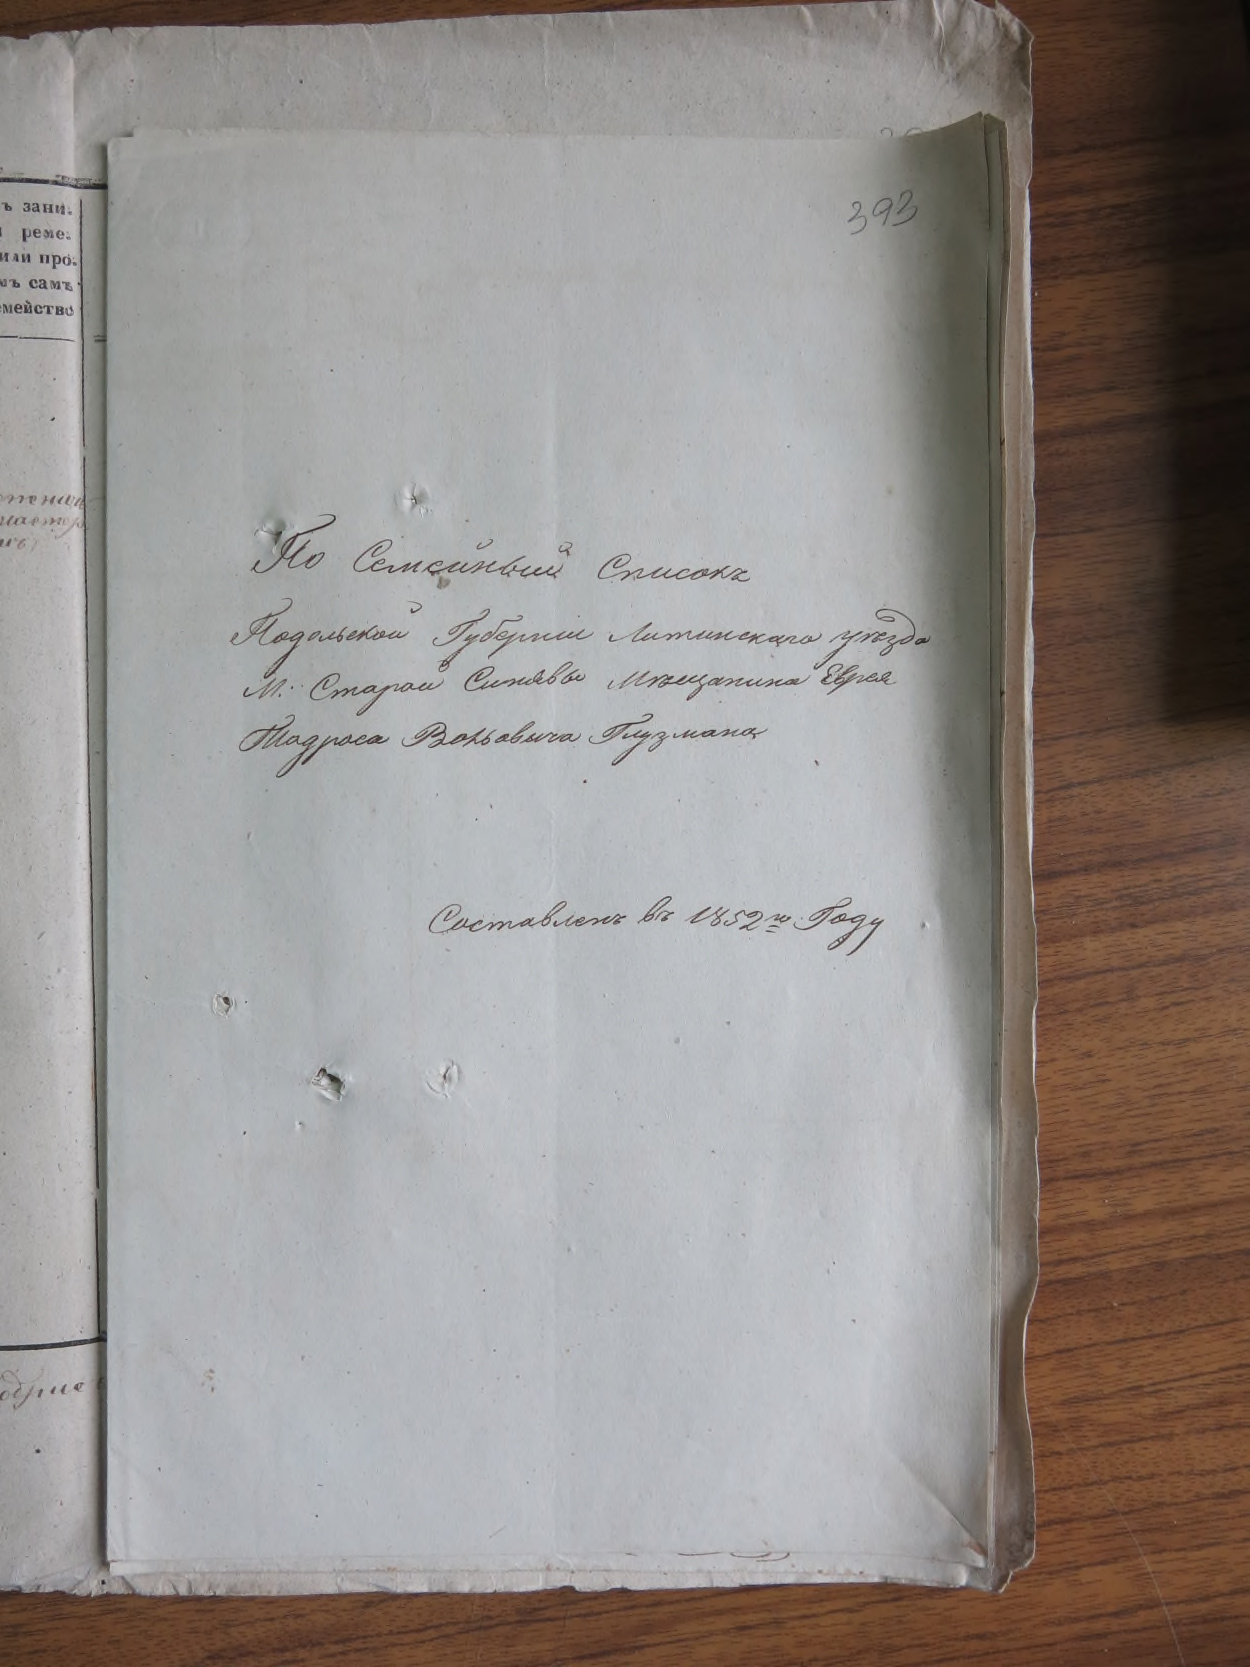 393
ъ зани-
реме-
или про-
мъ самъ
емейство
По Семейный Списокъ
Подольской Губерніи Литинскаго уѣзда
М. Старой Синявы Мѣщанина Еврея
Тодроса Вольовича Глузмана
Составленъ въ 1852 го Году